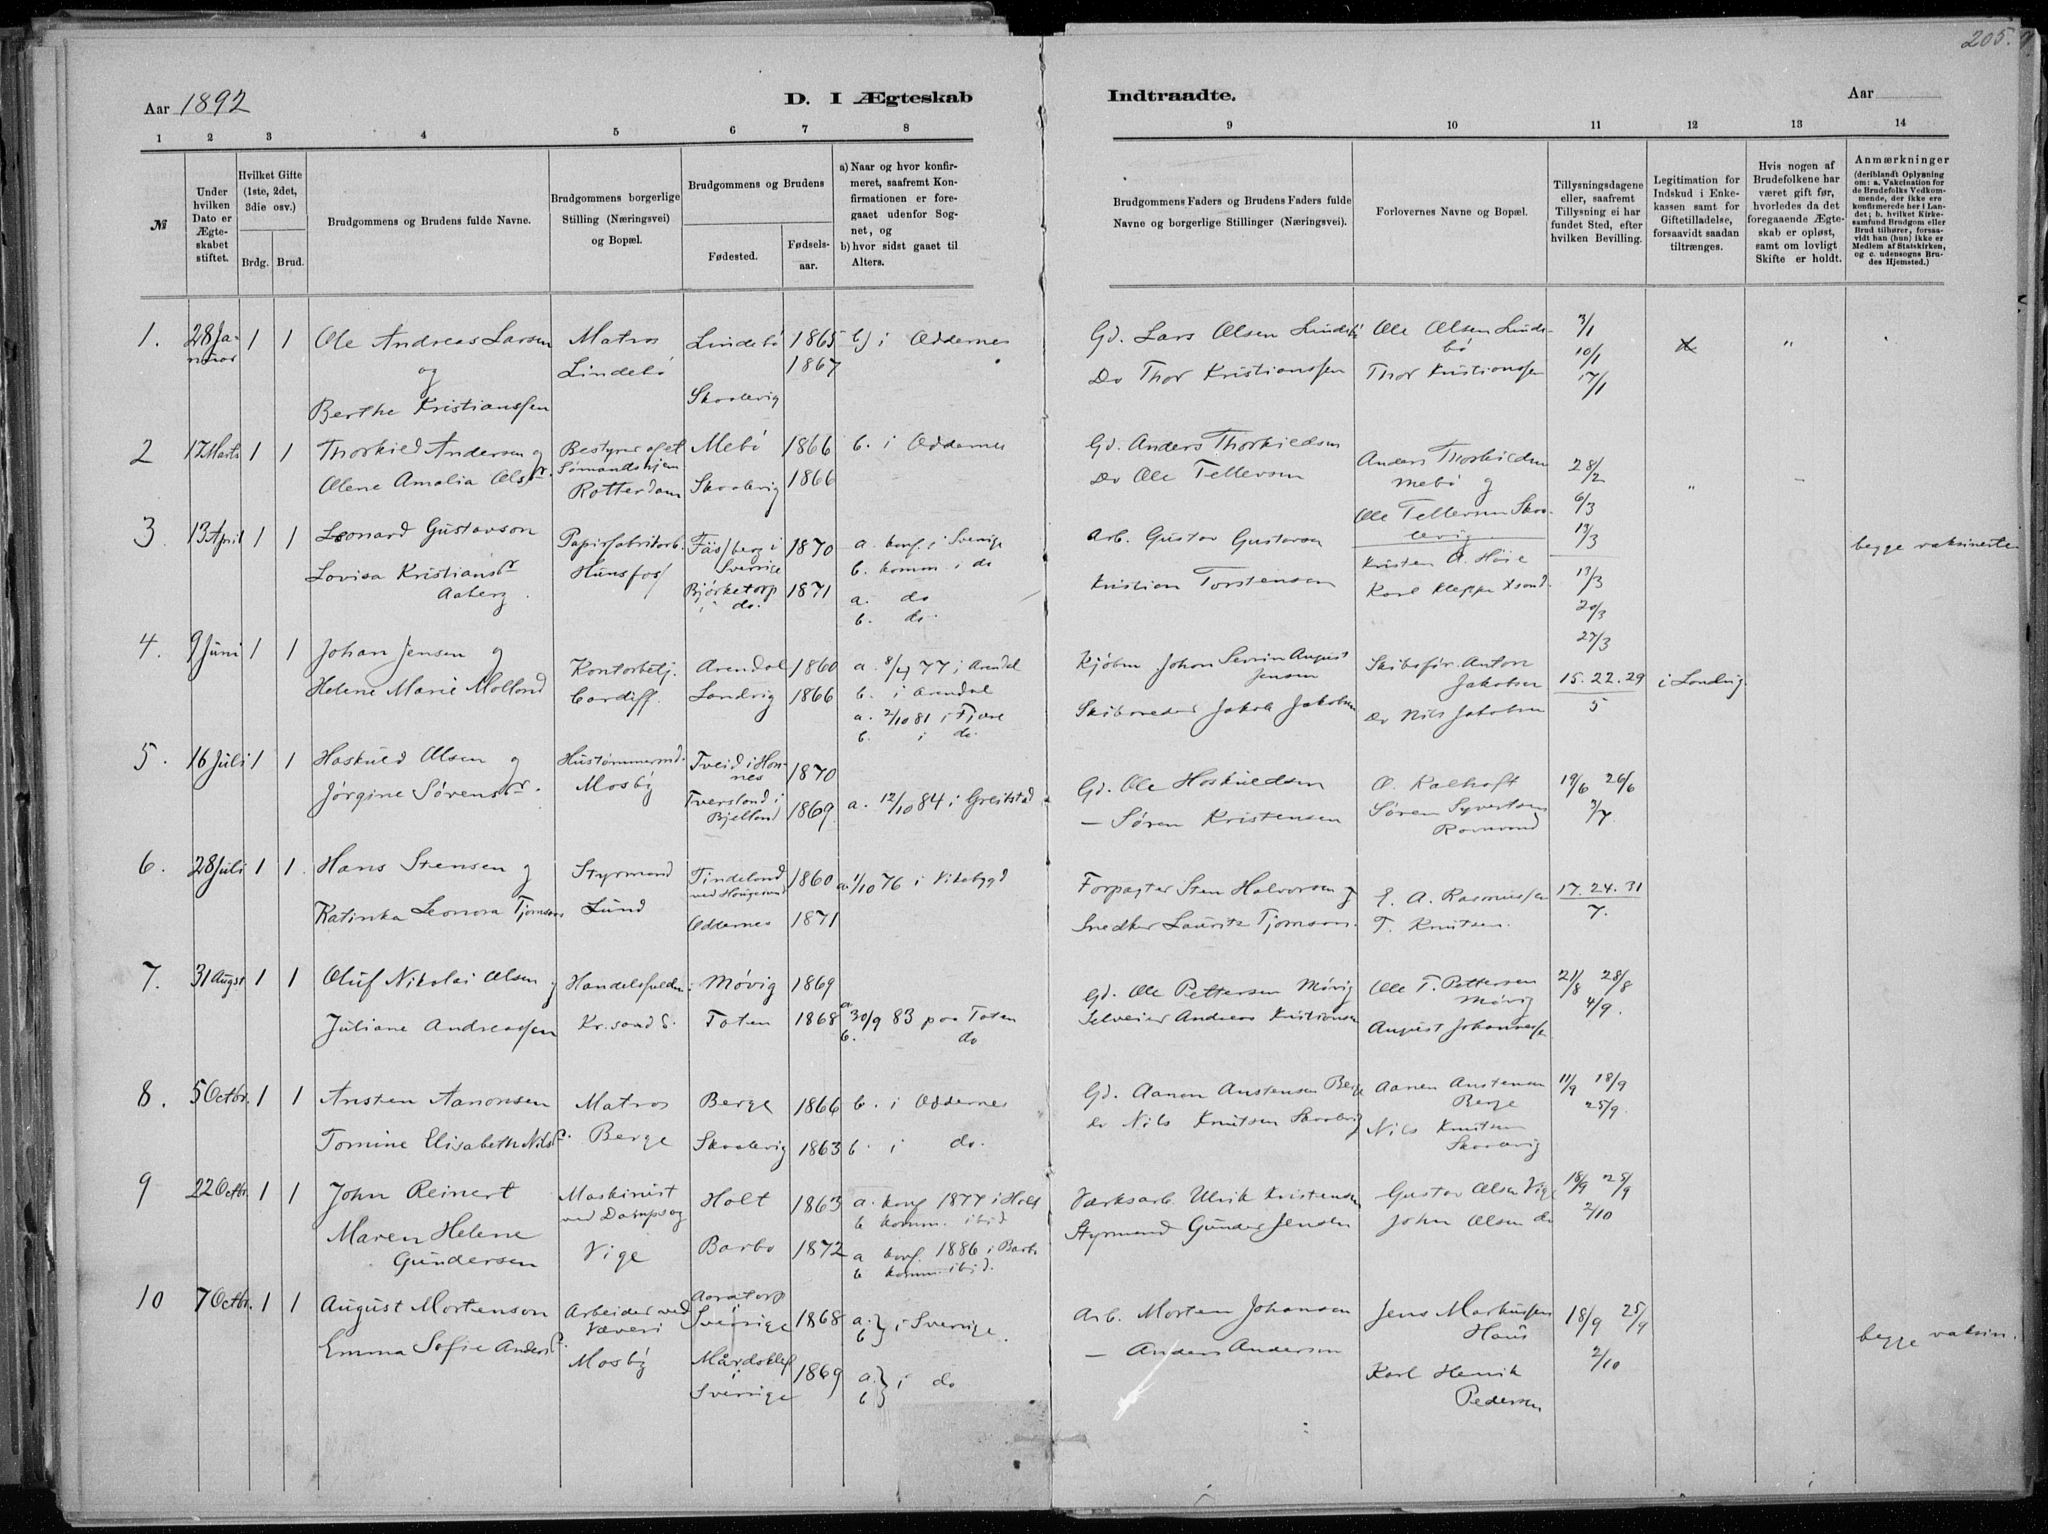 205.
Aar 1892
D. I Ægteskab
Indtraadte.
Aar
1 2 3 4 5 6 7 8
9 10 11 12 13 14
№
Under hvilken Dato er Ægteskabet stiftet.
Hvilket Gifte (1ste, 2det, 3die osv.)
Brdg. Brud.
Brudgommens og Brudens fulde Navne.
Brdgommens borgerlige Stilling (Næringsvei) og Bopæl.
Brudgommens og Brudens
Fødested.
Fødselsaar.
a) Naar og hvor konfirmeret, saafremt Konfirmationen er foregaaet udenfor Sognet, og
b) hvor sidst gaaet til Alters.
Brudgommens Faders og Brudens Faders fulde Navne og borgerlige Stillinger (Næringsvei).
Forlovernes Navne og Bopæl.
Tillysningsdagene eller, saafremt Tillysning ei har fundet Sted, efter hvilken Bevilling.
Legitimation for Indskud i Enkekassen samt for Giftetilladelse, forsaavidt saadan tiltrænges.
Hvis nogen af Brudefolkene har været gift før, hvorledes da det foregaaende Ægteskab er opløst, samt om lovligt Skifte er holdt.
Anmærkninger (deriblandt Oplysning om: a. Vakcination for de Brudefolks Vedkommende, der ikke ere konfirmerede her i Landet; b. hvilket Kirkesamfund Brudgom eller Brud tilhører, forsaavidt han (hun) ikke er Medlem af Statskirken, og c. udensogns Brudes Hjemsted.)
1. 28 Januar 1 1 Ole Andreas Larsen Matros Lindebø 1865 b) i Oddernes
og Lindebø 1867
Berthe Kristianssen Skaalevig
Gd. Lars Olsen Lindebø Ole Olsen Lindebø 3/1
Do Thor Kristianssen Thor Kristianssen 10/1
17/1
2 17 Marts 1 1 Thorkild Andersen og Bestyrer af et Mebø 1866 b. i Oddernes
Olene Amalia Olsdr. Sømandshjem Skaalevig 1866
Rotterdam
Gd. Anders Thorkildsen Anders Thorkildsen 28/2
Do Ole Tellevsen Mebø og 6/3
Ole Tellevsen Skaalevig 13/3
3 13 April 1 1 Leonard Gustavson Papirfabrikarb. Fässberg i Sverrige 1870 a. konf. i Sverige
Lovisa Kristiansdr Hunsfos b. komm. i do
Aaberg. Bjørketorp i do. 1871 a. do
b. do.
Arb. Gustav Gustavsen Kristen A. Høie 13/3 begge vaksinerte
Kristian Torstensen Karl Kleppe Xsand. 20/3
27/3
4. 9 Juni 1 1 Johan Jensen og Kontorbetj. Arendal 1860 a. 8/4 77 i Arendal
Helene Marie Molland Cardiff. Landvig 1866 b. i Arendal
a. 2/10 81 i Fjære
b. i do
Kjøbm Johan Sevrin August Jensen Skibsfør. Anton Jakobsen 15. 22. 29 i Landvig.
Skibsreder Jakob Jakobsen Do Nils Jakobsen 5
5. 16 Juli 1 1 Haskuld Olsen og Hustømmermd. Tveid i Honnes 1870
Jørgine Sørensdr. Mosby Tversland i Bjelland 1869 a. 12/10 84 i Greibstad
Gd. Ole Haskuldsen O. Kalhoft 19/6 26/6
— Søren Kristensen Søren Syvertsen 3/7
6. 28 Juli 1 1. Hans Stensen og Styrmand Tindeland ved Haugesund 1860 a. 1/10 76 i Vikebygd
Katinka Leonora Tjomsen Lund Oddernes 1871
Forpagter Sten Halvorsen og E. A. Rasmussen 17. 24. 31
Snedker Lauritz Tjomson. T. Knutsen. 7.
7. 31 Augst 1 1 Oluf Nikolai Olsen og Handelsfuldm. Møvig 1869
Juliane Andreassen Kr.sand S. Toten 1868 a. 30/9 83 paa Toten
b. do
Gd. Ole Pettersen Møvig Ole T. Pettersen Møvig 21/8 28/8
Selveier Andreas Kristiansen August Johannessen 4/9.
8. 5 Octbr. 1 1 Ansten Aanonsen Matros Berge 1866 b. i Oddernes
Tomine Elisabeth Nilsdr. Berge Skaalevig 1863 b. i do.
Gd. Aanon Anstensen Berge Aanen Anstensen Berge 11/9 18/9
Do Nils Knutsen Skaalevig Nils Knutsen Skaalevig 25/9.
9 22 Octbr. 1 1 John Reinert Maskinist Holt 1863 a. konf 1877 i Holt
Maren Helene ved Dampsag b. komm. ibid
Gundersen Vige Barbo 1872 a konf. 1886 i Barbo
b komm. ibid.
Værksarb. Ulrik Kristensen Gustav Olsen Vige 18/9 25/9
Styrmand Gunder Jensen John Olsen do 2/10
10 7 Octbr. 1 1 August Mortenson Arbeider ved Aoratorp i Sverrige 1868 a. b } i Sverrige.
Emma Sofie Andersdr. Væveri
Mosby Mårdsklef i Sverrige 1869 a. b } i do
Arb. Morten Johansen Jens Markussen Haus 18/9 25/9 begge vaksin.
— Anders Anderson Karl Henrik Pedersen 2/10